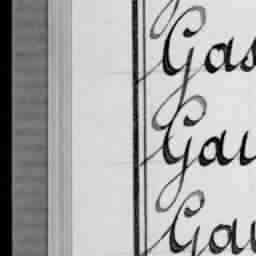 Gas
Gau
Gau